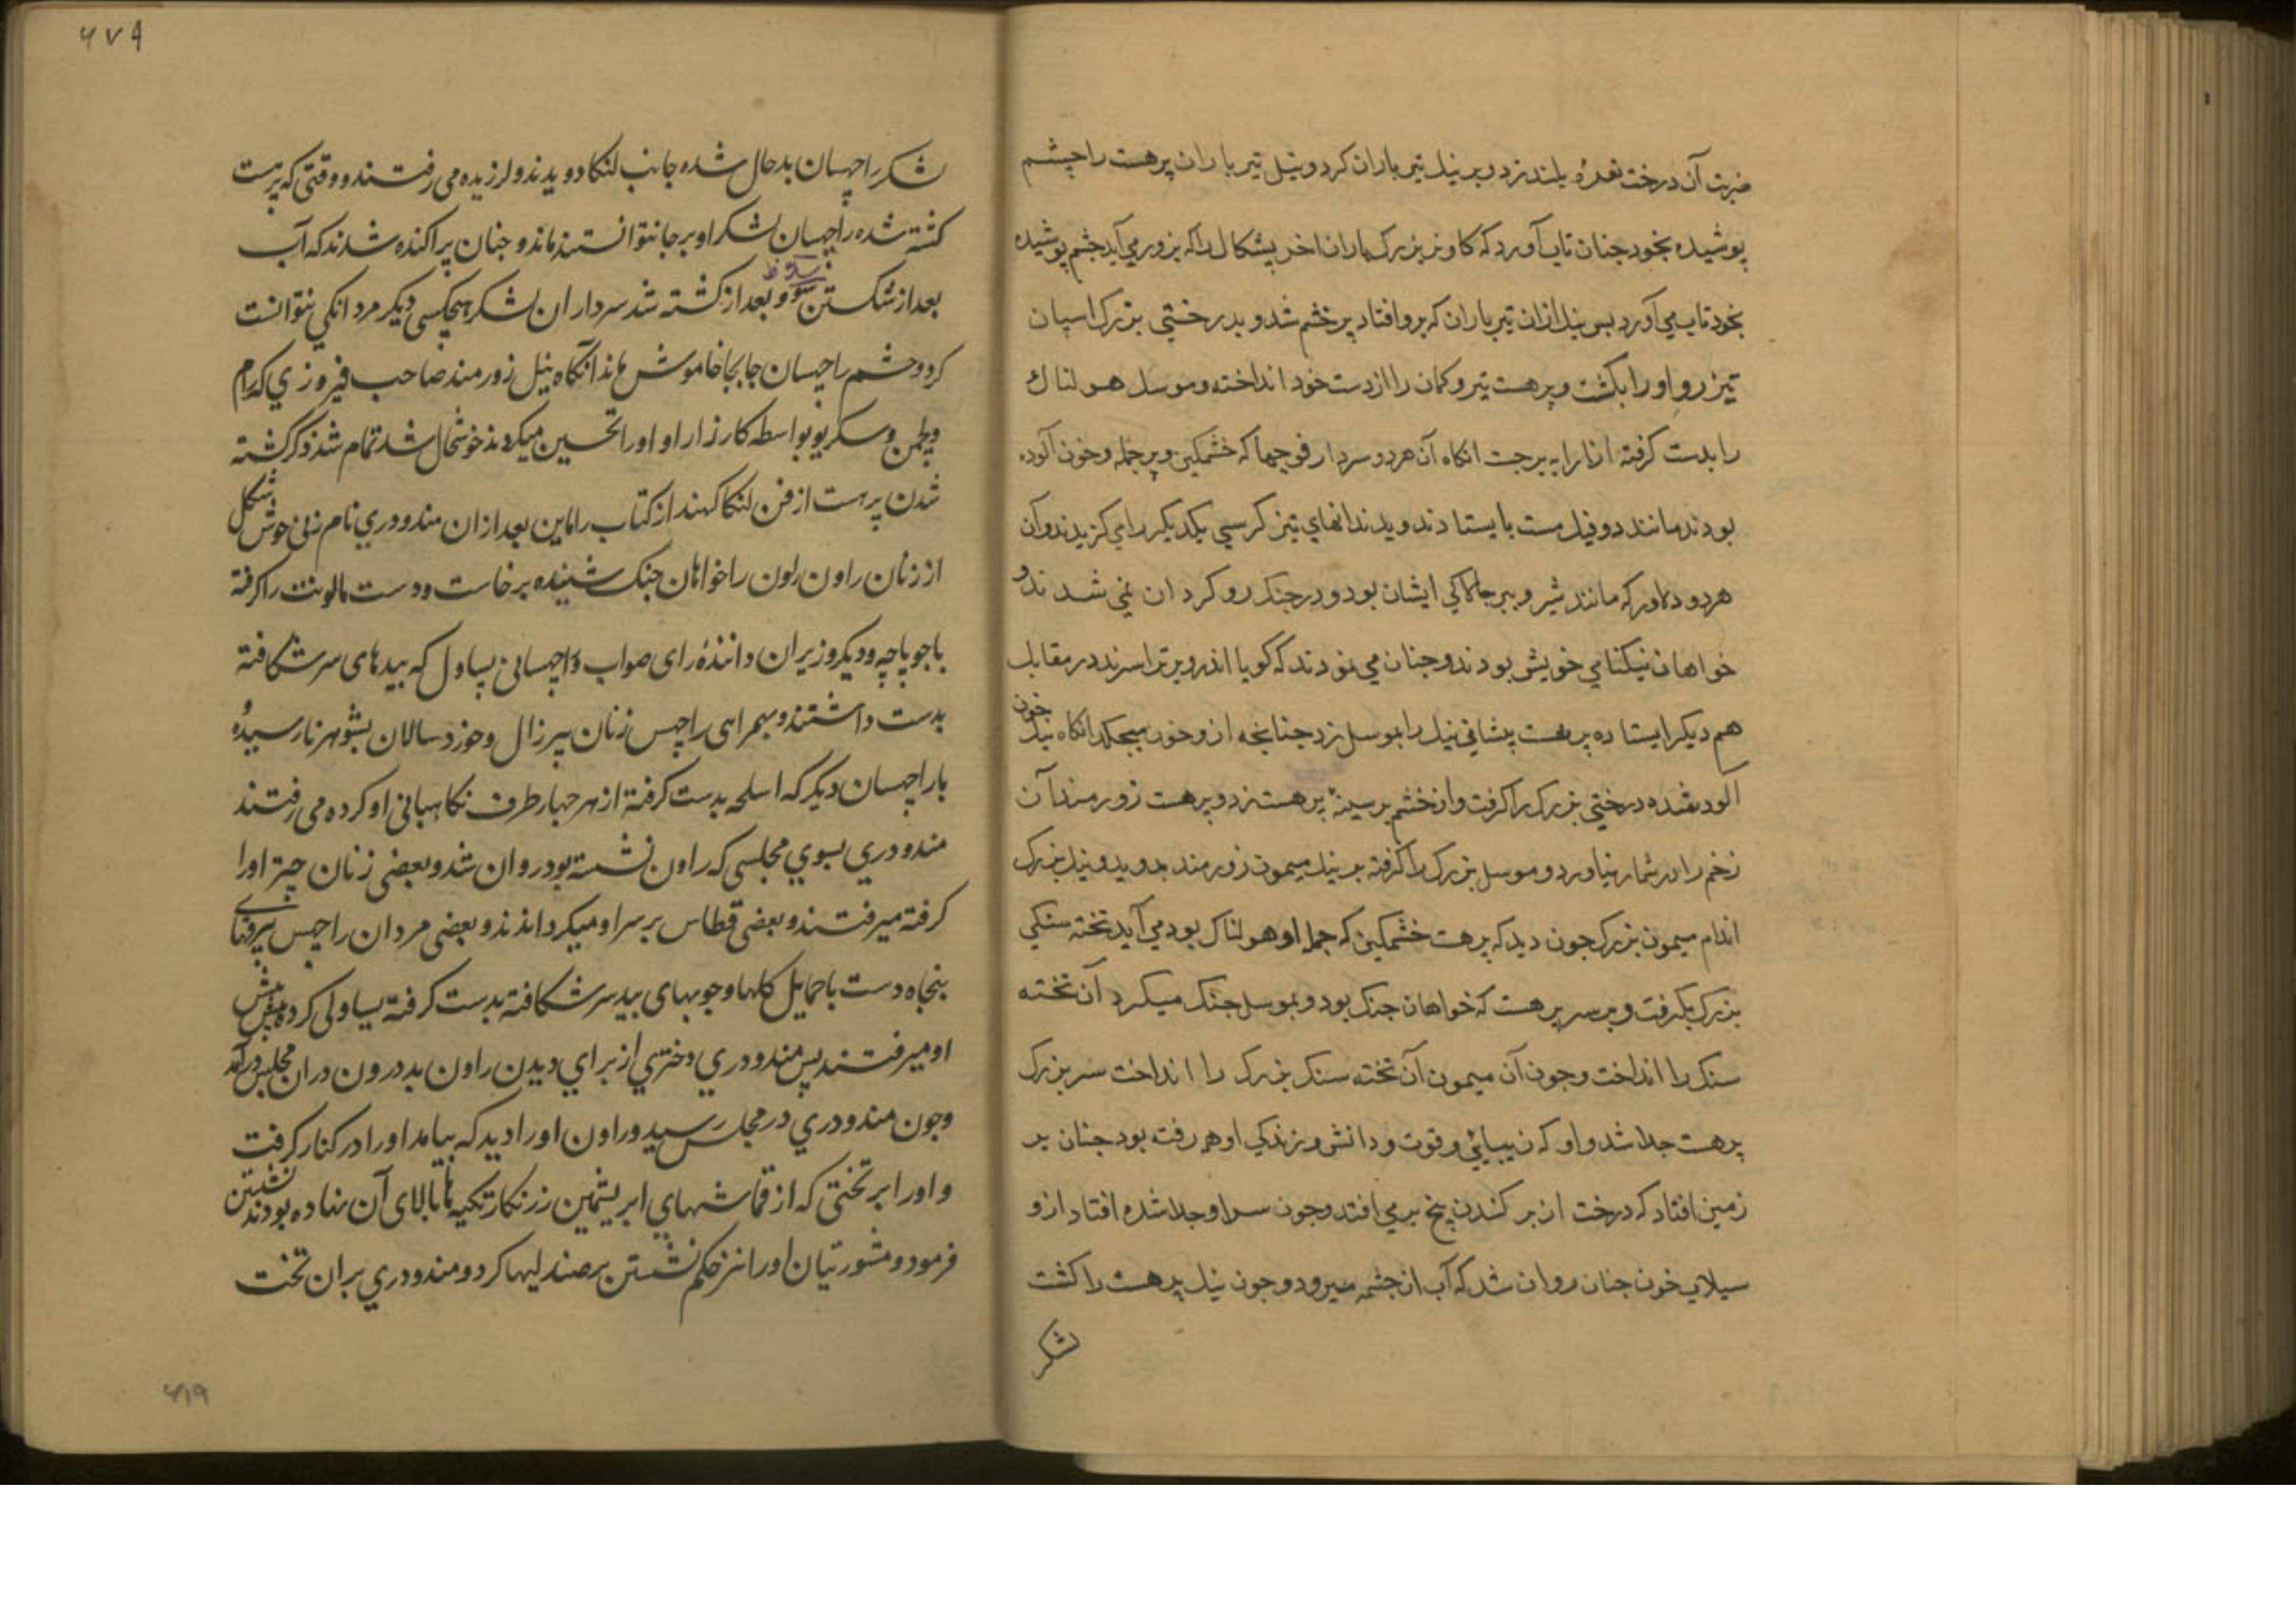 ضربت آن درخت نعرهٔ بلند بزد و بر نیل تیر باران کرد و نیل تیر باران پرهست را چشم
پوشیده بخود چنان تاب آورد که کاو نر بزرک باران اخر پشکال را که بزور می آید چشم پوشیده
بخود تاب می آورد پس نیل ازان تیر باران که برو افتاد پر خشم شد و بدرختی بزرک اسپان
تیز رو او را بکشت و پرهست تیر و کمان را از دست خود انداخته و موسل هولناک
را بدست کرفته از ارابه برجست انکاه آن هر دو سردار فوجها که خشمکین و پر حمله و خون آلوده
بودند مانند دو فیل مست بایستادند و بدندانهای تیز کرسی یکدیکر را می کزیدند و آن
هر دو دلاور که مانند شیر و ببر چالاکی ایشان بود و در جنک رو کردان نمی شدند و
خواهان نیکنامی خویش بودند و چنان می نمودند که کویا اندر و برتراسرند در مقابل
هم دیکر ایستاده پرهست پیشانی نیل را بموسل بزد چنانچه ازو خون میچکد انکاه نیل خون
آلود شده درختی بزرک را کرفت و از خشم بر سینهٔ پرهست زد و پرهست زورمند آن
زخم را در شمار نیاورد و موسل بزرک را کرفته بر نیل میمون زورمند بدوید و نیل بزرک
اندام میمون بزرک چون دید که پرهست خشمکین که حملهٔ او هولناک بود می آید تخته سنکی
بزرک بکرفت و بر سر پرهست که خواهان جنک بود و بموسل جنک میکرد آن تخته
سنک را انداخت و چون آن میمون آن تخته سنک بزرک را انداخت سر بزرک
پرهست جدا شد و او که زیبائی و قوت و دانش و زندکی او هم رفته بود چنان بر
زمین افتاد که درخت از بر کندن بیخ بر می افتد و چون سر او جدا شده افتاد ازو
سیلاب خون چنان روان شد که آب از چشمه میرود و چون نیل پرهست را کشت
لشکر
۶۷۹
لشکر راچهسان بدحال شده جانب لنکا دویدند و لرزیده می رفتند و وقتی که پرهست
کشته شده راچهسان لشکر او بر جا نتوانستند ماند و چنان پراکنده شدند که آب
بعد از شکستن و بعد از کشته شد سرداران لشکر هیچکسی دیکر مردانکی نتوانست
کرد و حشم راچهسان جابجا خاموش ماند آنکاه نیل زورمند صاحب فیروزی که رام
و لچمن و سکریو بواسطه کارزار او او را تحسین میکردند خوشحال شد تمام شد ذکر کشته
شدن پرهست از فن لنکا کهند از کتاب راماین بعد ازان مندودری نام زنی خوش شکل
از زنان راون راون را خواهان جنک شنیده برخاست و دست مالونت را کرفته
با جوپاچه و دیکر وزیران دانندهٔ رای صواب و راچهسانی یساول که بیدهای سر شکافته
بدست داشتند و بهمراهی راچهس زنان پیر زال و خورد سالان بشوهر نارسیده و
با راچهسان دیکر که اسلحه بدست کرفته از هر چهار طرف نکاهبانی او کرده می رفتند
مندودری بسوی مجلسی که راون نشسته بود روان شد و بعضی زنان چتر او را
کرفته میرفتند و بعضی قطاس بر سر او میکردانیدند و بعضی مردان راچهس پیر
پنجاه دست با حمایل کلها و چوبهای بید سر شکافته بدست کرفته یساولی کرده پیش پیش
او میرفتند پس مندودری دختری از برای دیدن راون بدرون دران مجلس درآمد
و چون مندودری در مجلس رسید و راون او را دید که بیامد او را در کنار کرفت
و او را بر تختی که از قماشهای ابریشمین زرنکار تکیه ها بالای آن نهاده بودند نشستن
فرمود و مشورتیان او را نیز حکم نشستن بر صندلیها کرد و مندودری بران تخت
۶۱۹